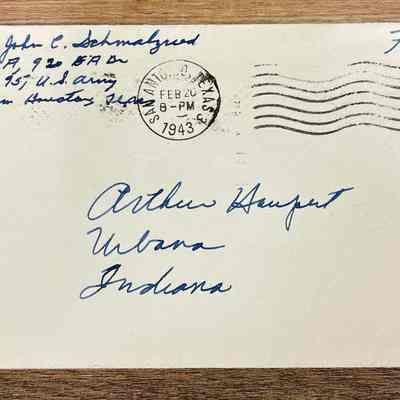 John C. Schmalzried
A, 920
95, U.S. Army
m Houston, Texas
SAN ANTONIO, TEXAS
FEB 20
8-PM
1943
Arthur Haupert
Urbana
Indiana
F